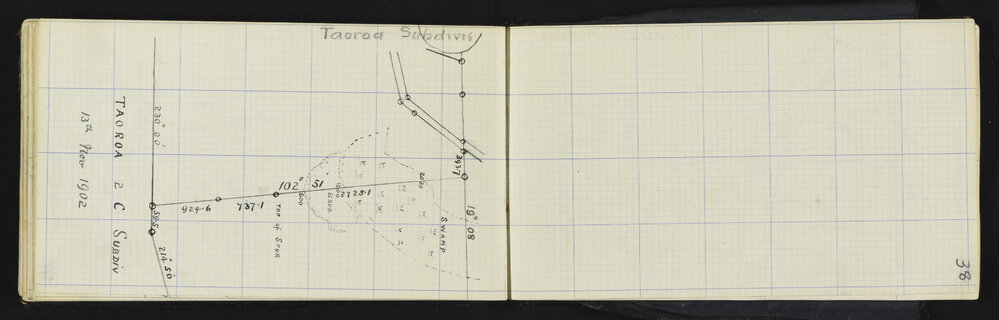 Taoroa Subdivis
TAOROA 2 C SUBDIV
13th Nov 1902
230° 00'
595
214° 50'
924.6
737.1
102° 51'
TOP of SPUR
600
SCRUB
2725.1
2020
SWAMP
393.7
19° 08'
38